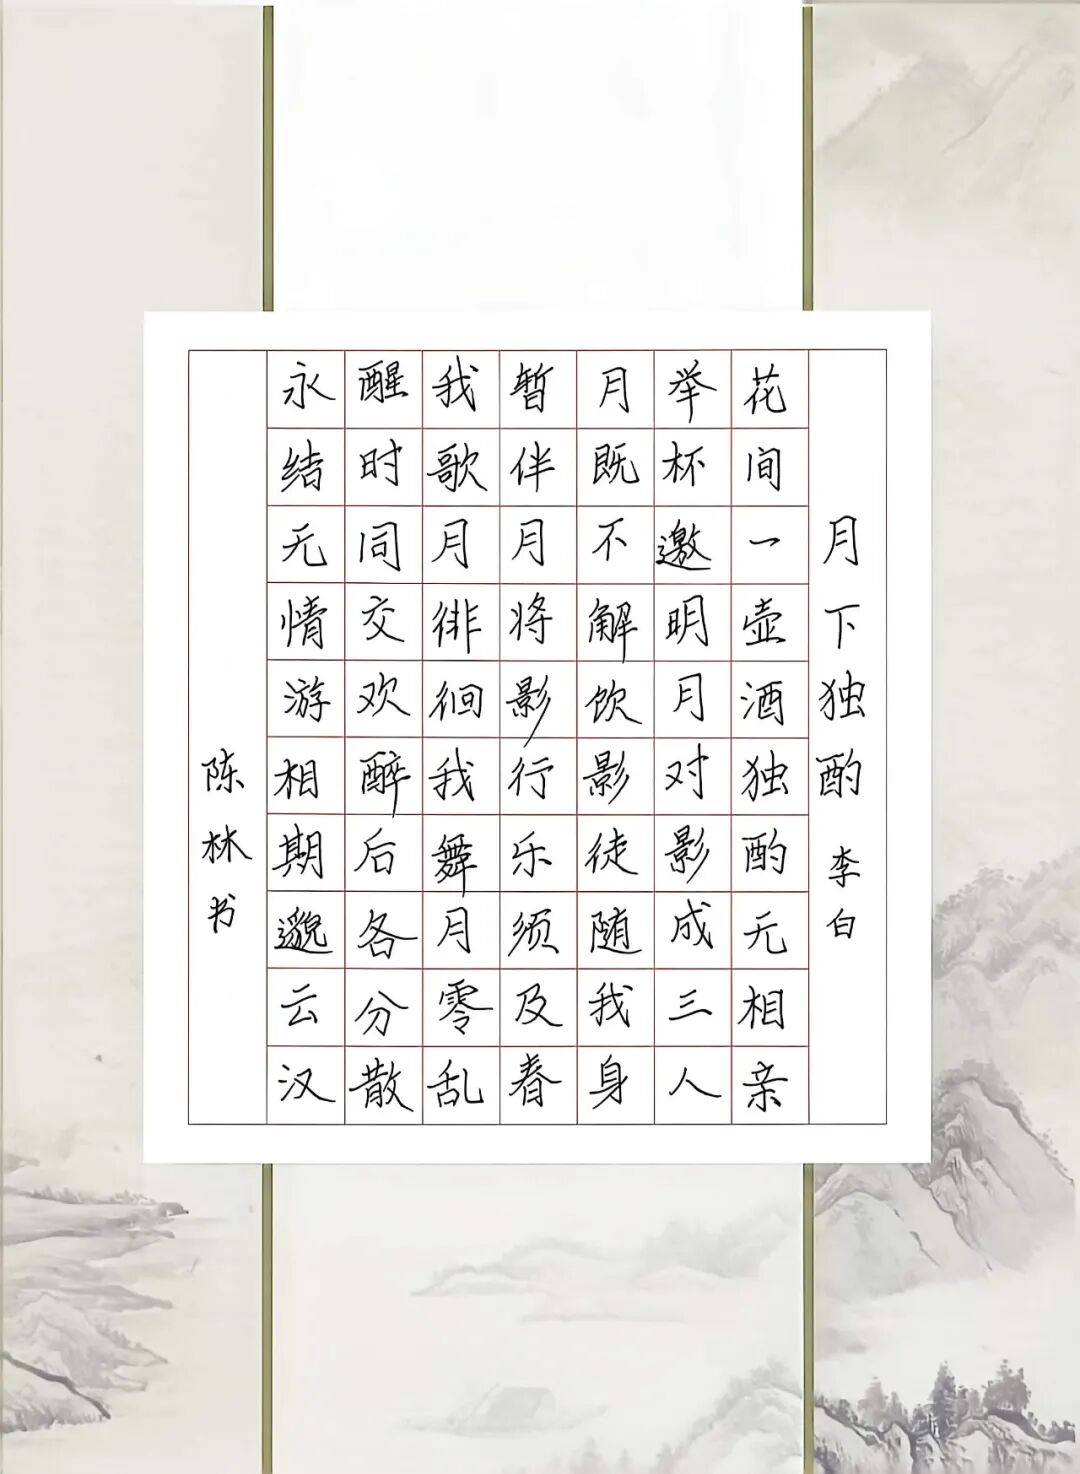 月下独酌 李白
花间一壶酒独酌无相亲
举杯邀明月对影成三人
月既不解饮影徒随我身
暂伴月将影行乐须及春
我歌月徘徊我舞月零乱
醒时同交欢醉后各分散
永结无情游相期邈云汉
陈林书